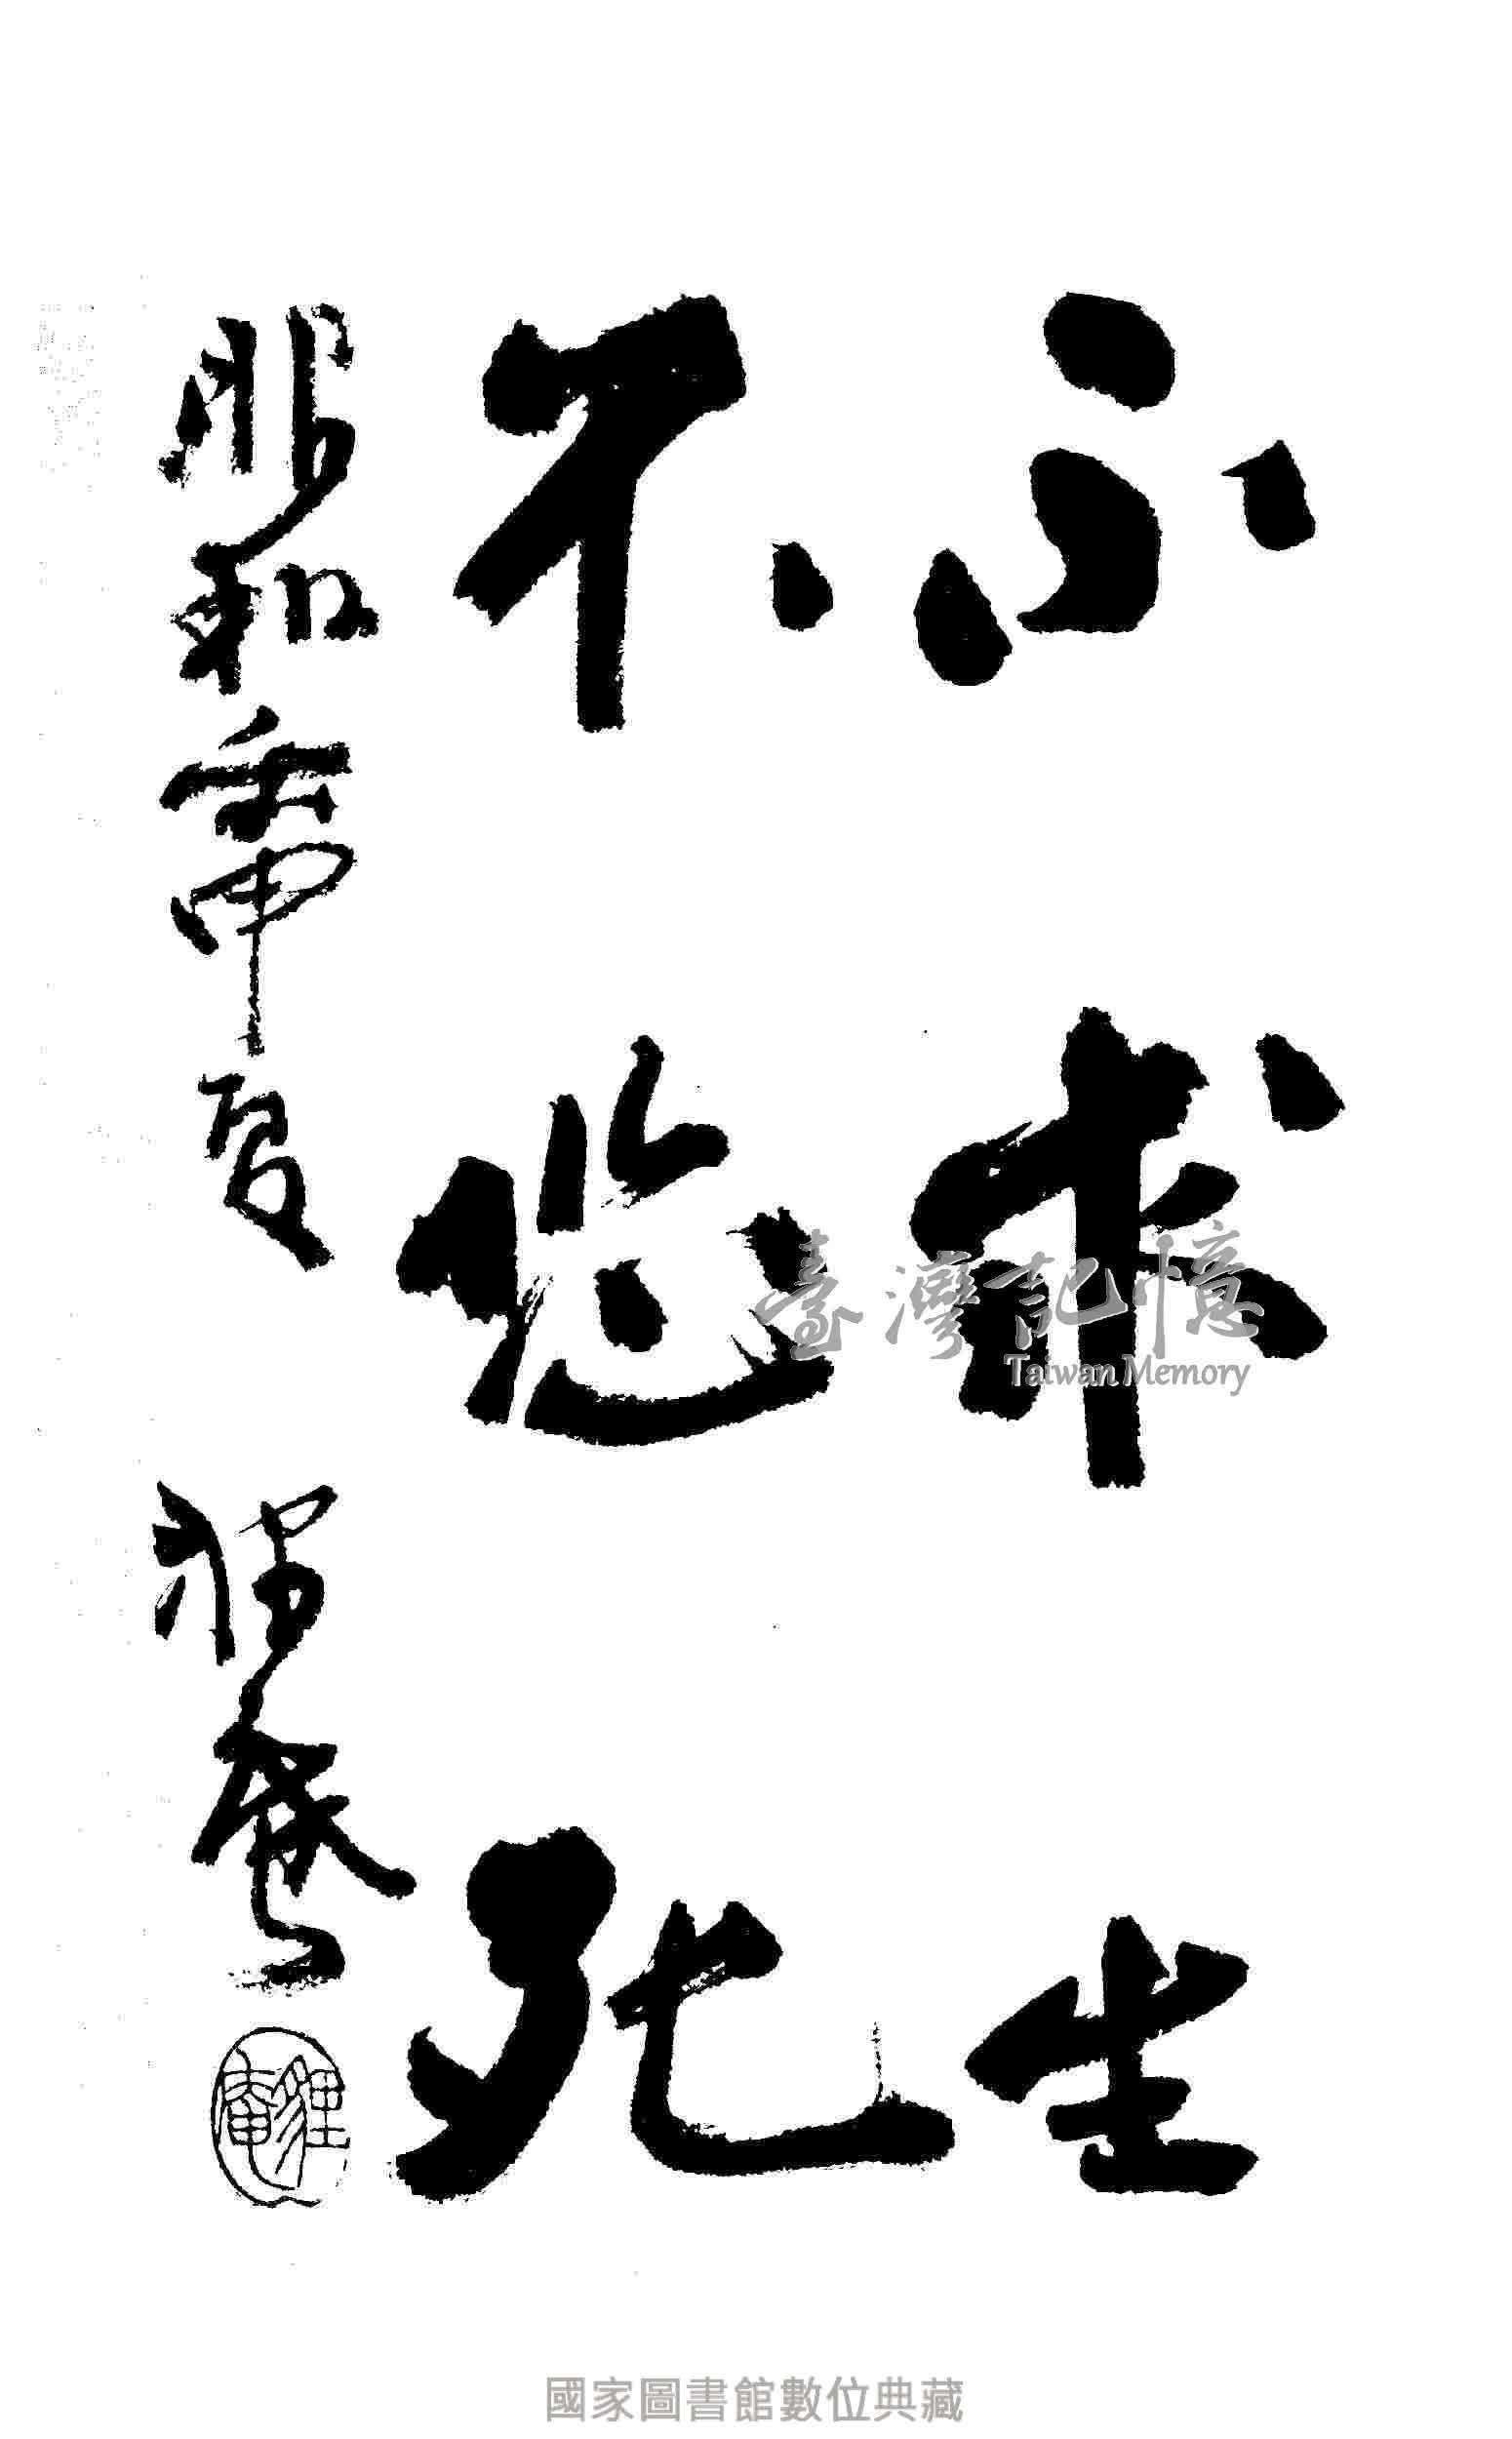 不求生
不死
昭和壬申夏
貍庵
臺灣記憶
Taiwan Memory
國家圖書館數位典藏